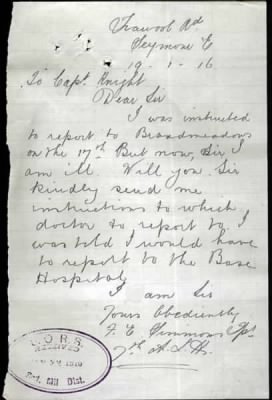 Trawool Rd
Seymour E
19-1-16
To Capt Knight
Dear Sir
I was instructed
to report to Broadmeadows
on the 17th. But now, Sir I
am ill. Will you Sir
kindly send me
instructions to which
doctor to report to I
was told I would have
to report to the Base
Hospital
I am Sir
Yours Obediently
F. E. Simmons
7th A.L.H.
RECEIVED
Mil Dist.